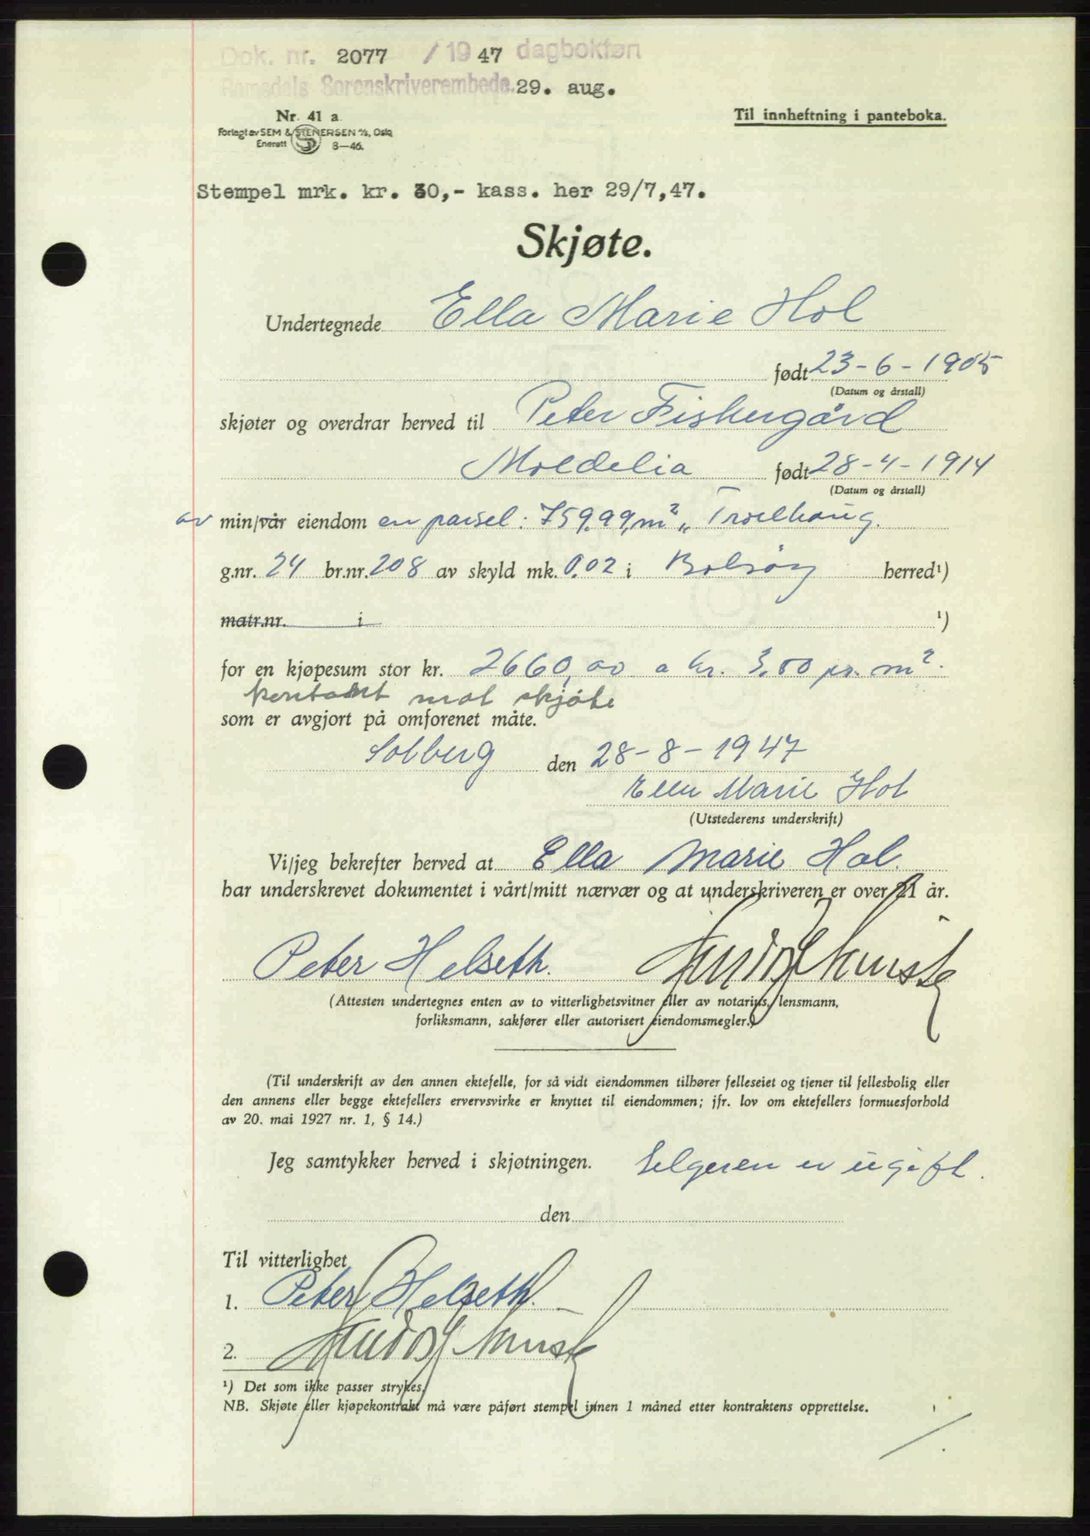 Dok. nr. 2077 / 1947 dagbokført
Romsdals Sorenskriverembede. 29. aug.
Nr. 41 a
Forlagt av SEM & STENERSEN A/S, Oslo
Enerett 8—46.
Til innheftning i panteboka.
Stempel mrk. kr. 30,- kass. her 29/7,47.
Skjøte.
Undertegnede Ella Marie Hol
født 23-6-1905
(Datum og årstall)
skjøter og overdrar herved til Peter Fiskergård
Moldelia født 28-4-1914
(Datum og årstall)
av min/vår eiendom en parsel: 759.99, m² „ Troelhaug.
g.nr. 24 br.nr. 208 av skyld mk. 0.02 i Bolsøy herred¹)
matr.nr. i ¹)
for en kjøpesum stor kr. 2660,00 a kr. 3.50 pr. m².
kontant mot skjøte
som er avgjort på omforenet måte.
Solberg den 28-8-1947
Ella Marie Hol
(Utstederens underskrift)
Vi/jeg bekrefter herved at Ella Marie Hol.
har underskrevet dokumentet i vårt/mitt nærvær og at underskriveren er over 21 år.
Peter Helseth.
(Attesten undertegnes enten av to vitterlighetsvitner eller av notarius, lensmann,
forliksmann, sakfører eller autorisert eiendomsmegler.)
(Til underskrift av den annen ektefelle, for så vidt eiendommen tilhører felleseiet og tjener til fellesbolig eller
den annens eller begge ektefellers ervervsvirke er knyttet til eiendommen; jfr. lov om ektefellers formuesforhold
av 20. mai 1927 nr. 1, § 14.)
Jeg samtykker herved i skjøtningen. Selgeren er ugift.
den
Til vitterlighet
1. Peter Helseth.
2.
¹) Det som ikke passer strykes.
NB. Skjøte eller kjøpekontrakt må være påført stempel innen 1 måned etter kontraktens opprettelse.